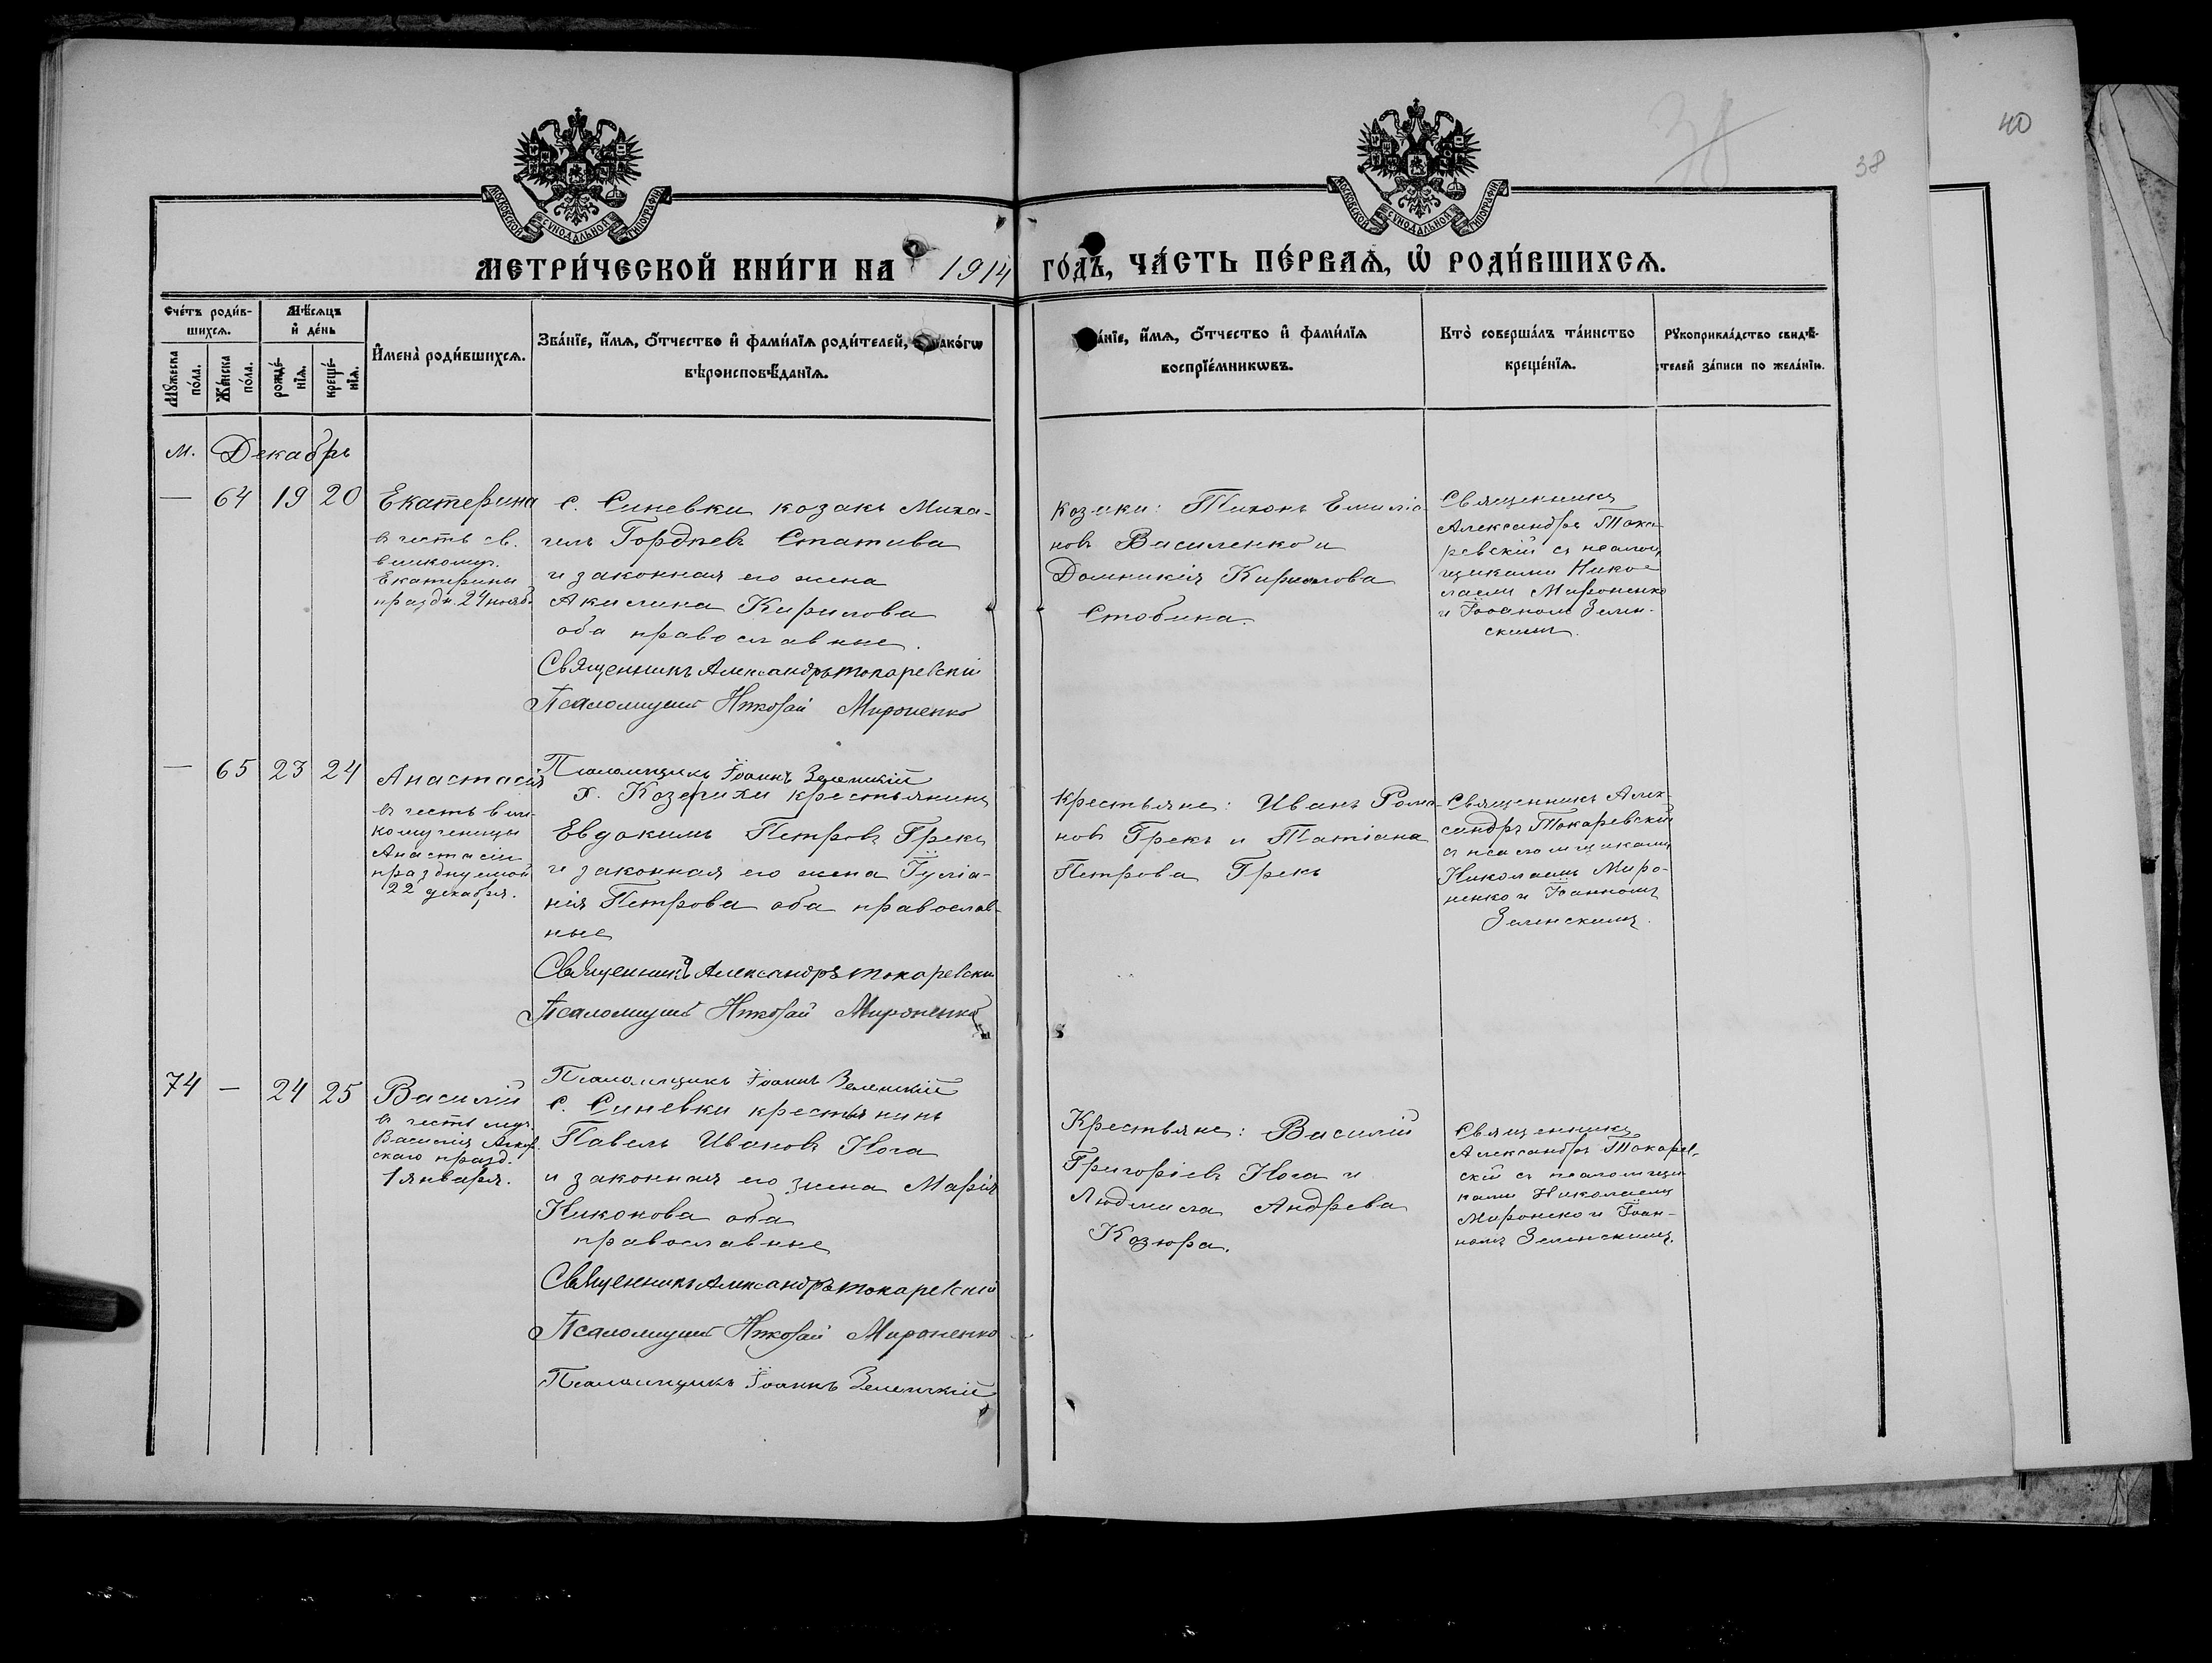 38
38
40
МОСКОВСКОЙ СѴНОДАЛЬНОЙ ТИПОГРАФІИ
МОСКОВСКОЙ СѴНОДАЛЬНОЙ ТИПОГРАФІИ
МЕТРИ́ЧЕСКОЙ КНИ́ГИ НА 1914 ГО́ДЪ, ЧА́СТЬ ПЕ́РВАѦ, Ѡ҆ РОДИ́ВШИХСѦ.
Сче́тъ роди́в-
шихсѧ.
Мѹжеска по́ла.
Же́нска по́ла.
Мѣ́сѧцъ
и҆ де́нь
рожде́-нїѧ.
креще́-нїѧ.
И҆мена̀ роди́вшихсѧ.
Зва́нїе, и҆́мѧ, ѻ҆́тчество и҆ фами́лїѧ роди́телей,
вѣроисповѣ́данїѧ.
и҆́мѧ, ѻ҆́тчество и҆ фами́лїѧ
воспрїе́мникѡвъ.
Кто̀ соверша́лъ та́инство
креще́нїѧ.
Рѹкоприкла́дство свидѣ́-
телей за́писи по жела́нїю.
м. Декабрь
— 64 19 20 Екатерина
в честь св.
великомуч.
Екатерины
праздн. 24 нояб.
с. Синевки козакъ Миха-
илъ Гордѣевъ Статива
и законная его жена
Акилина Кирилова
оба православные.
Священникъ Александръ Токаревскій
Псаломщикъ Николай Мироненко
Псаломщикъ Іоаннъ Зеленскій
козаки: Тихонъ Емиліа-
новъ Василенко и
Домникія Кирилова
Стобина.
Священникъ
Александръ Тока-
ревскій съ псалом-
щиками Нико-
лаемъ Мироненко
и Іоанномъ Зелен-
скимъ.
— 65 23 24 Анастасія
въ честь вели-
комученицы
Анастасіи
празднуемой
22 декабря.
х. Козерихи крестьянинъ
Евдокимъ Петровъ Грекъ
и законная его жена Іуліа-
нія Петрова оба православ-
ные
Священникъ Александръ Токаревскій
Псаломщикъ Николай Мироненко
Псаломщикъ Іоаннъ Зеленскій
Крестьяне: Иванъ Рома-
новъ Грекъ и Татіана
Петрова Грекъ
Священникъ Алек-
сандръ Токаревскій
съ псаломщиками
Николаемъ Миро-
ненко и Іоанномъ
Зеленскимъ.
74 — 24 25 Василій
в честь
Василія
скаго празд.
1 января.
с. Синевки крестьянинъ
Павелъ Ивановъ Нога
и законная его жена Марія
Никонова оба
православные
Священникъ Александръ Токаревскій
Псаломщикъ Николай Мироненко
Псаломщикъ Іоаннъ Зеленскій
Крестьяне: Василій
Григоріевъ Нога и
Людмила Андрева
Козюра.
Священникъ
Александръ Токарев-
скій съ псаломщи-
ками Николаемъ
Миронеко и Іоан-
номъ Зеленскимъ.